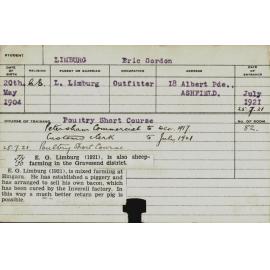 STUDENT
LIMBURG Eric Gordon
DATE OF BIRTH RELIGION PARENT OR GUARDIAN OCCUPATION ADDRESS DATE OF ENTRY
20th. May 1904 C.E. L. Limburg Outfitter 18 Albert Pde., ASHFIELD. July 1921
COURSE OF TRAINING Poultry Short Course NO. OF ROOM
Petersham Commercial to Dec. 1917 52.
Customs Clerk to July 1921
25.7.21 Poultry Short Course
E. G. Limburg (1921), is also sheep-
farming in the Gravesend district.
E. G. Limburg (1921), is mixed farming at
Bingara. He has established a piggery and
has arranged to sell his own bacon, which
has been cured by the Inverell factory. In
this way a much better return per pig is
possible.